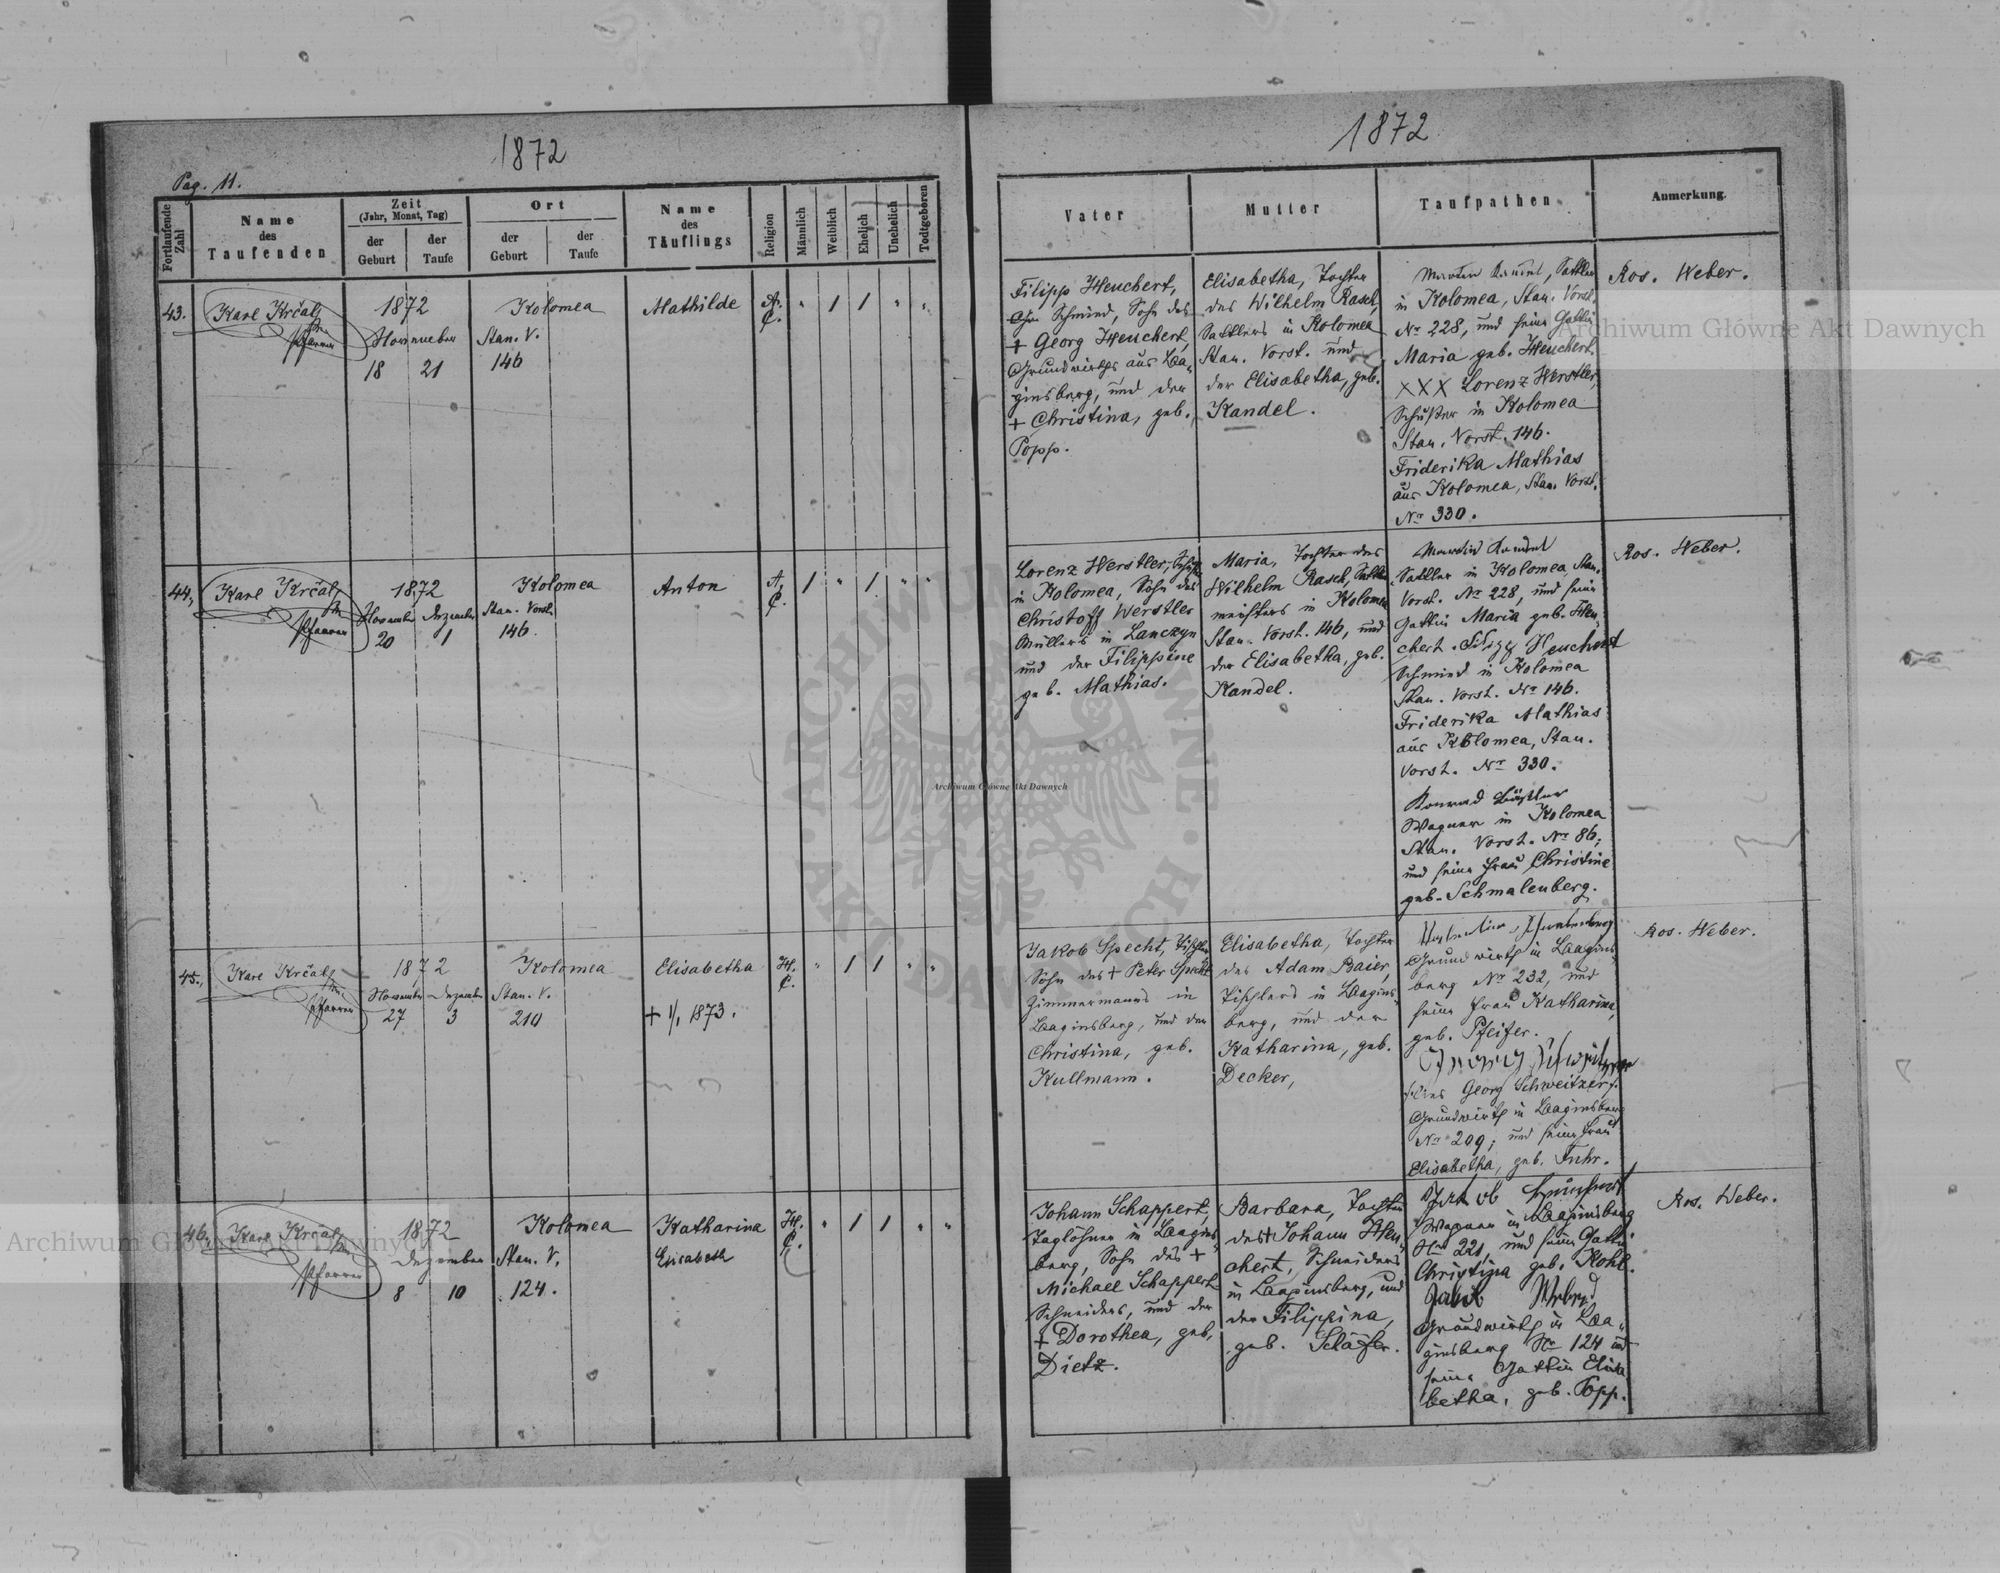 1872
Pag. 11.
Fortlaufende Zahl
Name des Taufenden
Zeit
(Jahr, Monat, Tag)
der Geburt
der Taufe
Ort
der Geburt
der Taufe
Name des Täuflings
Religion
Männlich
Weiblich
Ehelich
Unehelich
Todtgeboren
43.
Karl Krčal
Pfarrer
1872
November
18 21
Kolomea
Stan. V.
146
Mathilde
A. C.
" / / " "
44.
Karl Krčal
Pfarrer
1872
November Dezember
20 1
Kolomea
Stan. Vorst.
146.
Anton
A. C.
/ " / " "
45.
Karl Krčal
Pfarrer
1872
November Dezember
27 3
Kolomea
Stan. V.
210
Elisabetha
+ 1/1 1873.
H. C.
" / / " "
46.
Karl Krčal
Pfarrer
1872
Dezember
8 10
Kolomea
Stan. V.
124.
Katharina
Elisabeth
H. C.
" / / " "
1872
Vater
Mutter
Taufpathen
Anmerkung.
Filipp Heuchert,
Schmied, Sohn des
+ Georg Heuchert,
Grundwirths aus Baa-
ginsberg, und der
+ Christina, geb.
Popp.
Elisabetha, Tochter
des Wilhelm Rasch,
Sattlers in Kolomea
Stan. Vorst. und
der Elisabetha, geb.
Kandel.
Martin Kandel, Sattler
in Kolomea, Stan. Vorst.
No 228, und seine Gattin
Maria geb. Heuchert.
XXX Lorenz Werstler,
Schuster in Kolomea
Stan. Vorst. 146.
Friderika Mathias
aus Kolomea, Stan. Vorst.
Nr 330.
Ros. Weber.
Lorenz Werstler,
in Kolomea, Sohn des
Christoff Werstler
Müllers in Lanczyn
und der Filippine
geb. Mathias.
Maria, Tochter des
Wilhelm Rasch, Sattler-
meisters in Kolomea
Stan. Vorst. 146, und
der Elisabetha, geb.
Kandel.
Martin Kandel
Sattler in Kolomea Stan.
Vorst. No 228, und seine
Gattin Maria geb. Heu-
chert. Filipp Heuchert
Schmied in Kolomea
Stan. Vorst. Nr 146.
Friderika Mathias
aus Kolomea, Stan.
Vorst. Nr 330.
Konrad
Wagner in Kolomea
Stan. Vorst. Nr 86,
und seine Frau Christine
geb. Schmalenberg.
Ros. Weber.
Jakob Specht, Tischler
Sohn des + Peter Specht
Zimmermanns in
Baaginsberg, und der
Christina, geb.
Kullmann.
Elisabetha, Tochter
des Adam Baier,
Tischlers in Baagins-
berg, und der
Katharina, geb.
Decker,
Grundwirth in Baagins-
berg No 232, und
seine Frau Katharina,
geb. Pfeifer.
Georg Schweitzer
Georg Schweitzer,
Grundwirth in Baaginsberg
No 209; und seine Frau
Elisabetha, geb. Fuhr.
Ros. Weber.
Johann Schappert,
Taglöhner in Baagins-
berg, Sohn des +
Michael Schappert
Schneiders, und der
+ Dorothea, geb.
Dietz.
Barbara, Tochter
des + Johann Heu-
chert, Schneiders
in Baaginsberg, und
der Filippina,
geb. Schäfer.
Jakob
Wagner in Baaginsberg
No 221, und seine Gattin
Christina geb. Kohl.
Jakob
Grundwirth in Baa-
ginsberg No 124 und
seine Gattin Elisa-
betha, geb. Popp.
Ros. Weber.
Archiwum Główne Akt Dawnych
Archiwum Główne Akt Dawnych
Archiwum Główne Akt Dawnych